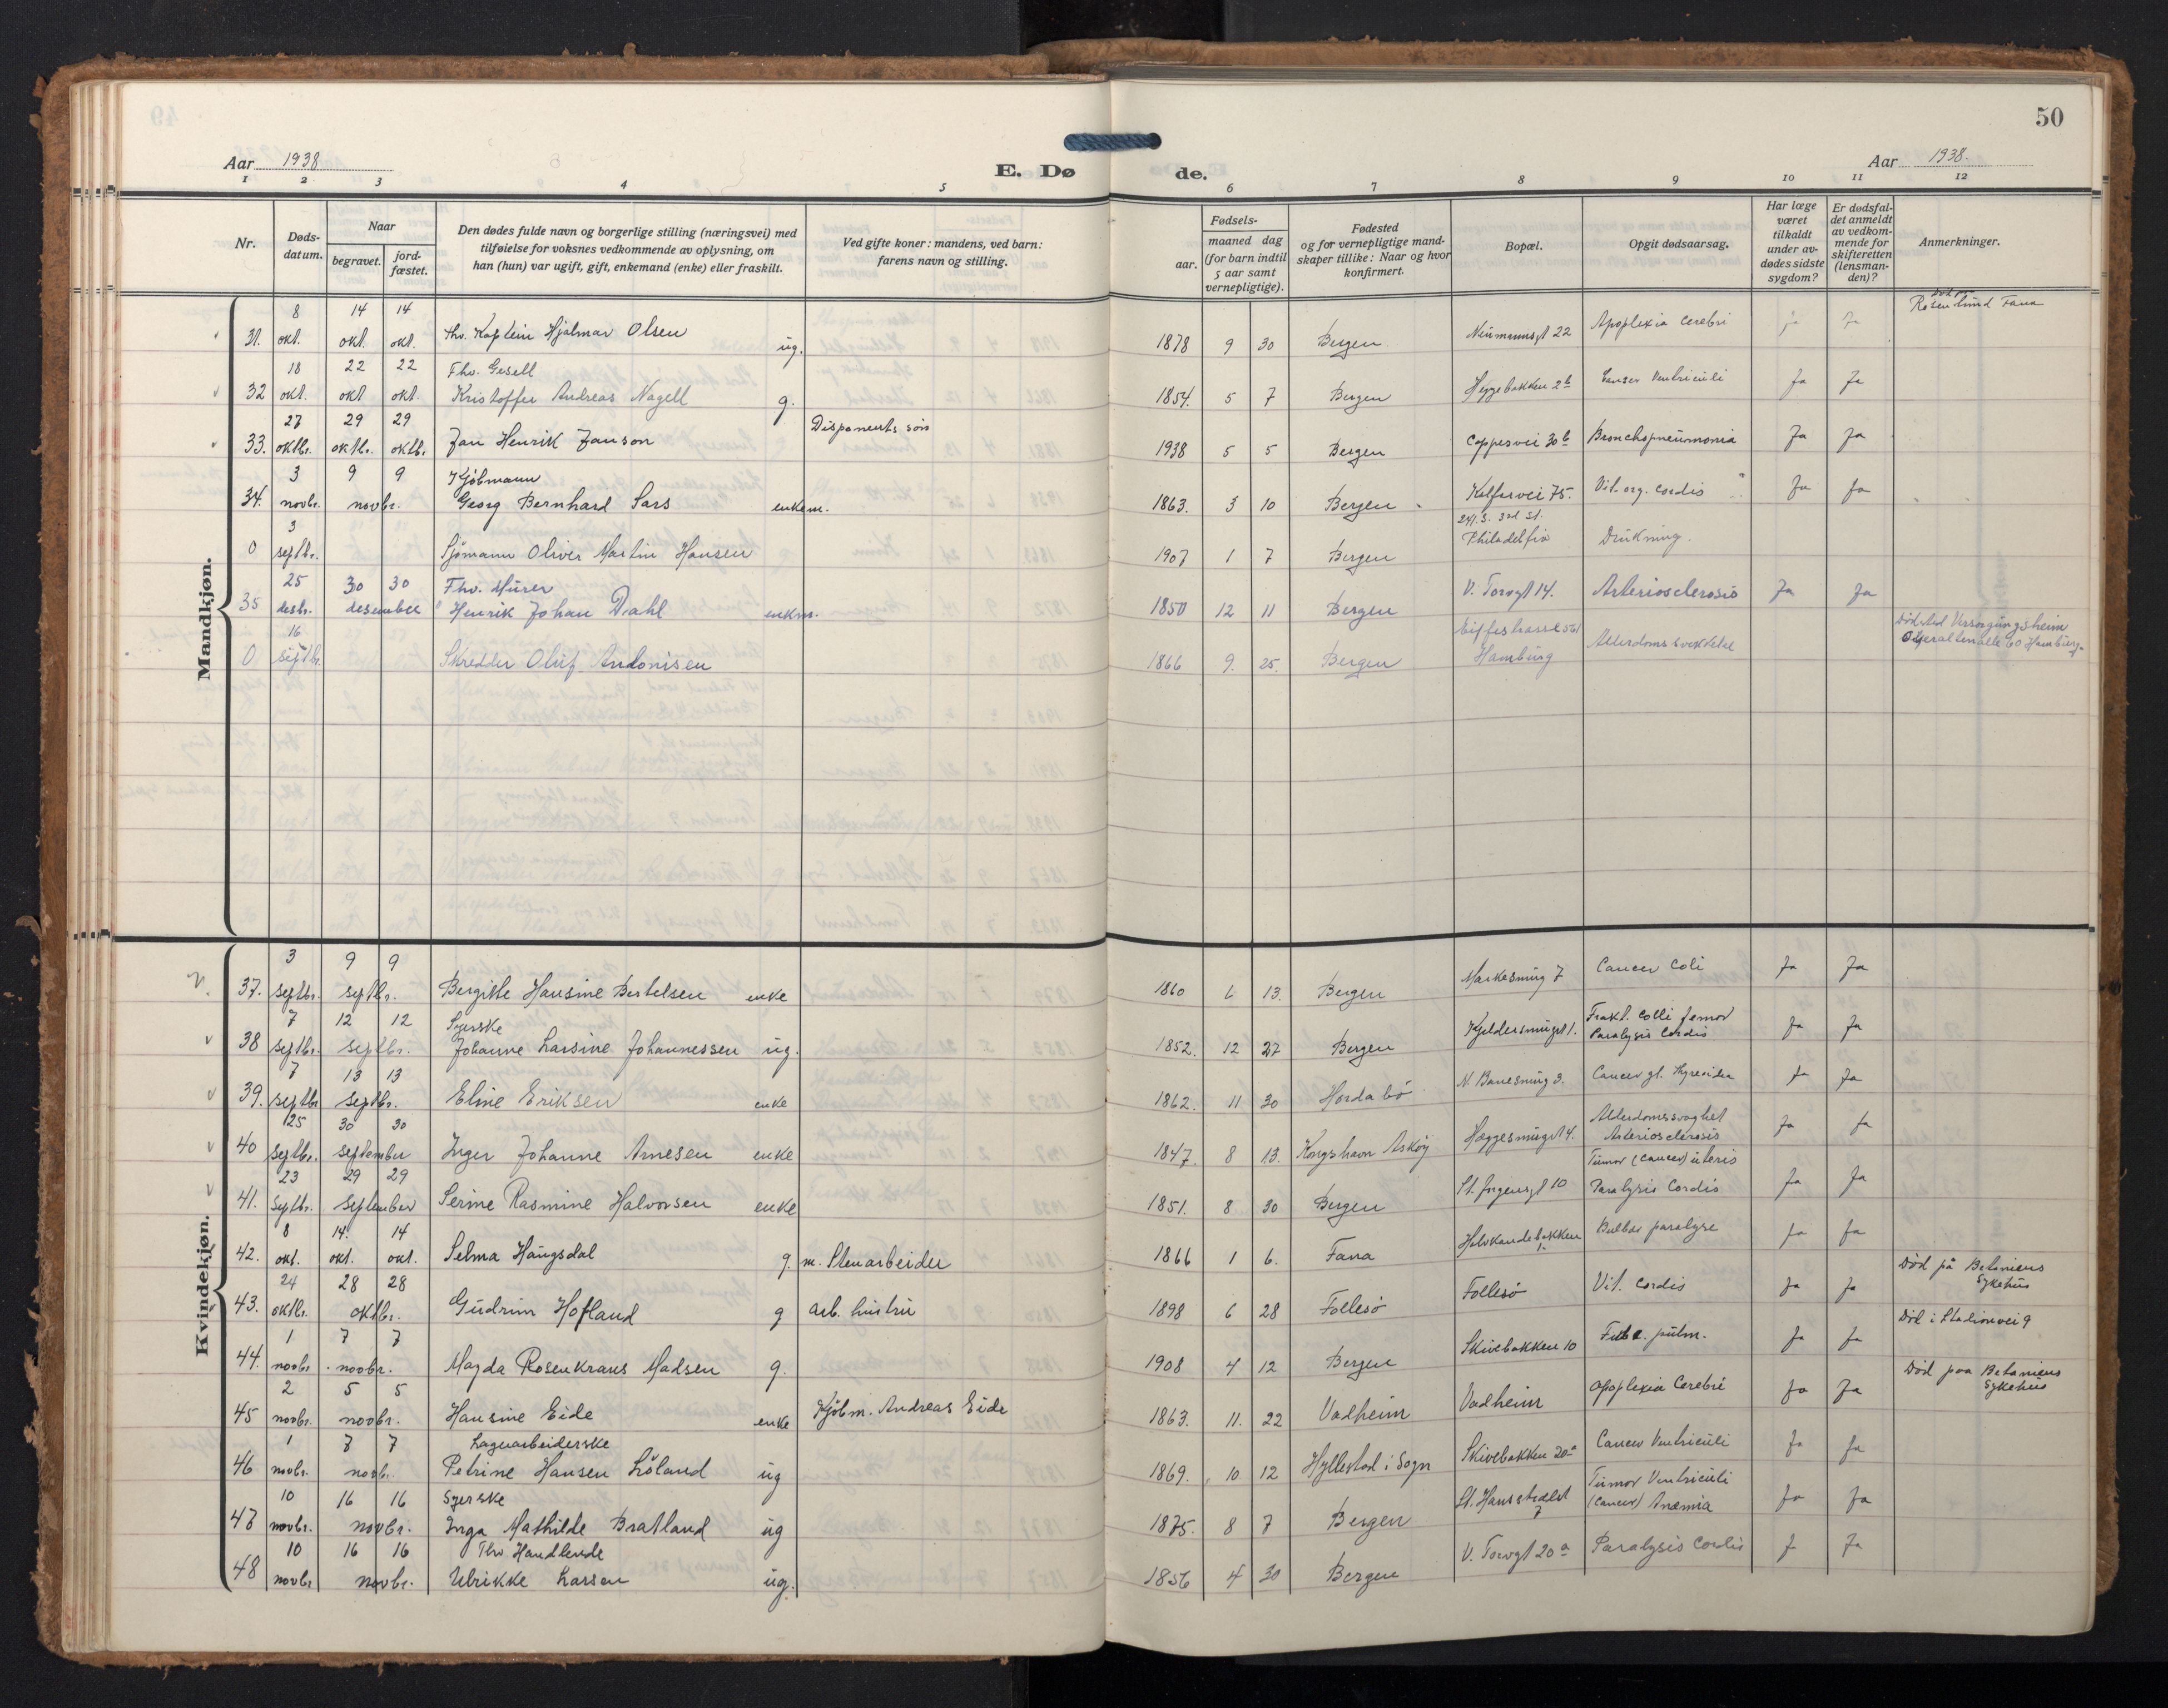 50
Aar 1938
E. Dø
de.
Aar 1938.
1 2 3 4 5 6 7 8 9 10 11 12
Nr.
Døds-
datum.
Naar
begravet.
jord-
fæstet.
Den dødes fulde navn og borgerlige stilling (næringsvei) med
tilføielse for voksnes vedkommende av oplysning, om
han (hun) var ugift, gift, enkemand (enke) eller fraskilt.
Ved gifte koner: mandens, ved barn:
farens navn og stilling.
Fødsels-
aar.
maaned dag
(for barn indtil
5 aar samt
vernepligtige).
Fødested
og for vernepligtige mand-
skaper tillike: Naar og hvor
konfirmert.
Bopæl.
Opgit dødsaarsag.
Har læge
været
tilkaldt
under av-
dødes sidste
sygdom?
Er dødsfal-
det anmeldt
av vedkom-
mende for
skifteretten
(lensman-
den)?
Anmerkninger.
Mandkjøn.
8 14 14 Rosenlund Fana
31. okt. okt. okt. Fhv. Kaptein Hjalmar Olsen ug. 1878 9 30 Bergen Neumannsgt 22 Apoplexia Cerebri ja Ja
18 22 22 Fhv. Gesell
32 okt. okt okt. Kristoffer Andreas Nagell g. 1854. 5 7 Bergen Heggebakken 2b Cancer Ventriculi Ja Ja
27 29 29 Disponents søn
33. oktbr. oktbr. oktbr. Jan Henrik Janson 1938 5 5 Bergen Coppesvei 30b Bronchopneumonia Ja Ja
3 9 9 Kjøbmann
34. novbr. novbr. Georg Bernhard Sars enkem. 1863. 3 10 Bergen Kalfarvei 75. Vit. org. cordis Ja Ja
3 241. S. 3rd St.
0 septbr. Sjømann Oliver Martin Hansen 1907 1 7 Bergen Philadelfia Drukning.
25 30 30 Fhv. Murer
35 desbr. desember Henrik Johan Dahl enkm. 1850 12 11 Bergen V. Torvgt 14. Arteriosclerosis Ja Ja
16 Eiffestrasse 561 Dødsted Versorgungsheim
0 septbr. Skredder Oluf Andonisen 1866 9. 25. Bergen Hamburg Alderdomssvekkelse Oberaltenalle 60 Hamburg.
Kvindekjøn.
3 9 9
37. septbr. septbr. Bergitte Hansine Bertelsen enke 1860 6 13. Bergen Markesmug 7 Cancer Coli Ja Ja
7 12 12 Syerske Frakt. Colli femor
38 septbr. septbr. Johanne Larsine Johannessen ug. 1852. 12 27 Bergen Kjeldersmuget 1. Paralysis Cordis Ja Ja
7 13 13
39. septbr septbr. Eline Eriksen enke 1862. 11 30 Hordabø N. Banesmug 3. Cancer gl. thyreoidea Ja Ja
25 30 30 Alderdomssvaghet
40 septbr. september Inger Johanne Arnesen enke 1847. 8 13. Kongshavn Askøy Heggesmuget 4. Arteriosclerosis Ja Ja
23 29 29 Tumor (Cancer) uteris
41. Septbr. September Serine Rasmine Halvorsen enke 1851. 8 30 Bergen St. Jørgensgt 10 Paralysis Cordis Ja Ja
8 14. 14
42. okt. okt. okt. Selma Haugsdal g. m. Stenarbeider 1866 1 6. Fana Halvkandebakken 1. Bulbar paralyse Ja Ja
24 28 28 Død på Betaniens Sykehus
43. oktbr. oktbr. Gudrun Hofland g arb. hustru 1898 6 28 Follesø Follesø Vit. Cordis Ja Ja
1 7 7 Død i Stadionvei 9
44. novbr. novbr. Magda Rosenkrans Madsen g. 1908 4 12 Bergen Skivebakken 10 Tub. pulm. Ja Ja
2 5 5 Død paa Betaniens Sykehus
45 novbr. novbr. Hansine Eide enke Kjøbm. Andreas Eide 1863. 11. 22 Vadheim Vadheim Apoplexia Cerebri Ja Ja
1 7 7 Lagerarbeiderske
46 novbr. novbr. Petrine Hansen Løland ug 1869. 10 12 Hyllestad i Sogn Skivebakken 20a Cancer Ventriculi Ja Ja
10 16 16 Syerske Tumor Ventriculi
47 novbr. novbr. Inga Mathilde Bratland ug 1875. 8 7 Bergen St. Hansstredet 7 (Cancer) Anæmia Ja Ja
10 16 16 Fhv Handlende
48 novbr novbr. Ulrikke Larsen ug. 1856 4 30 Bergen V. Torvgt 20a Paralysis Cordis J Ja